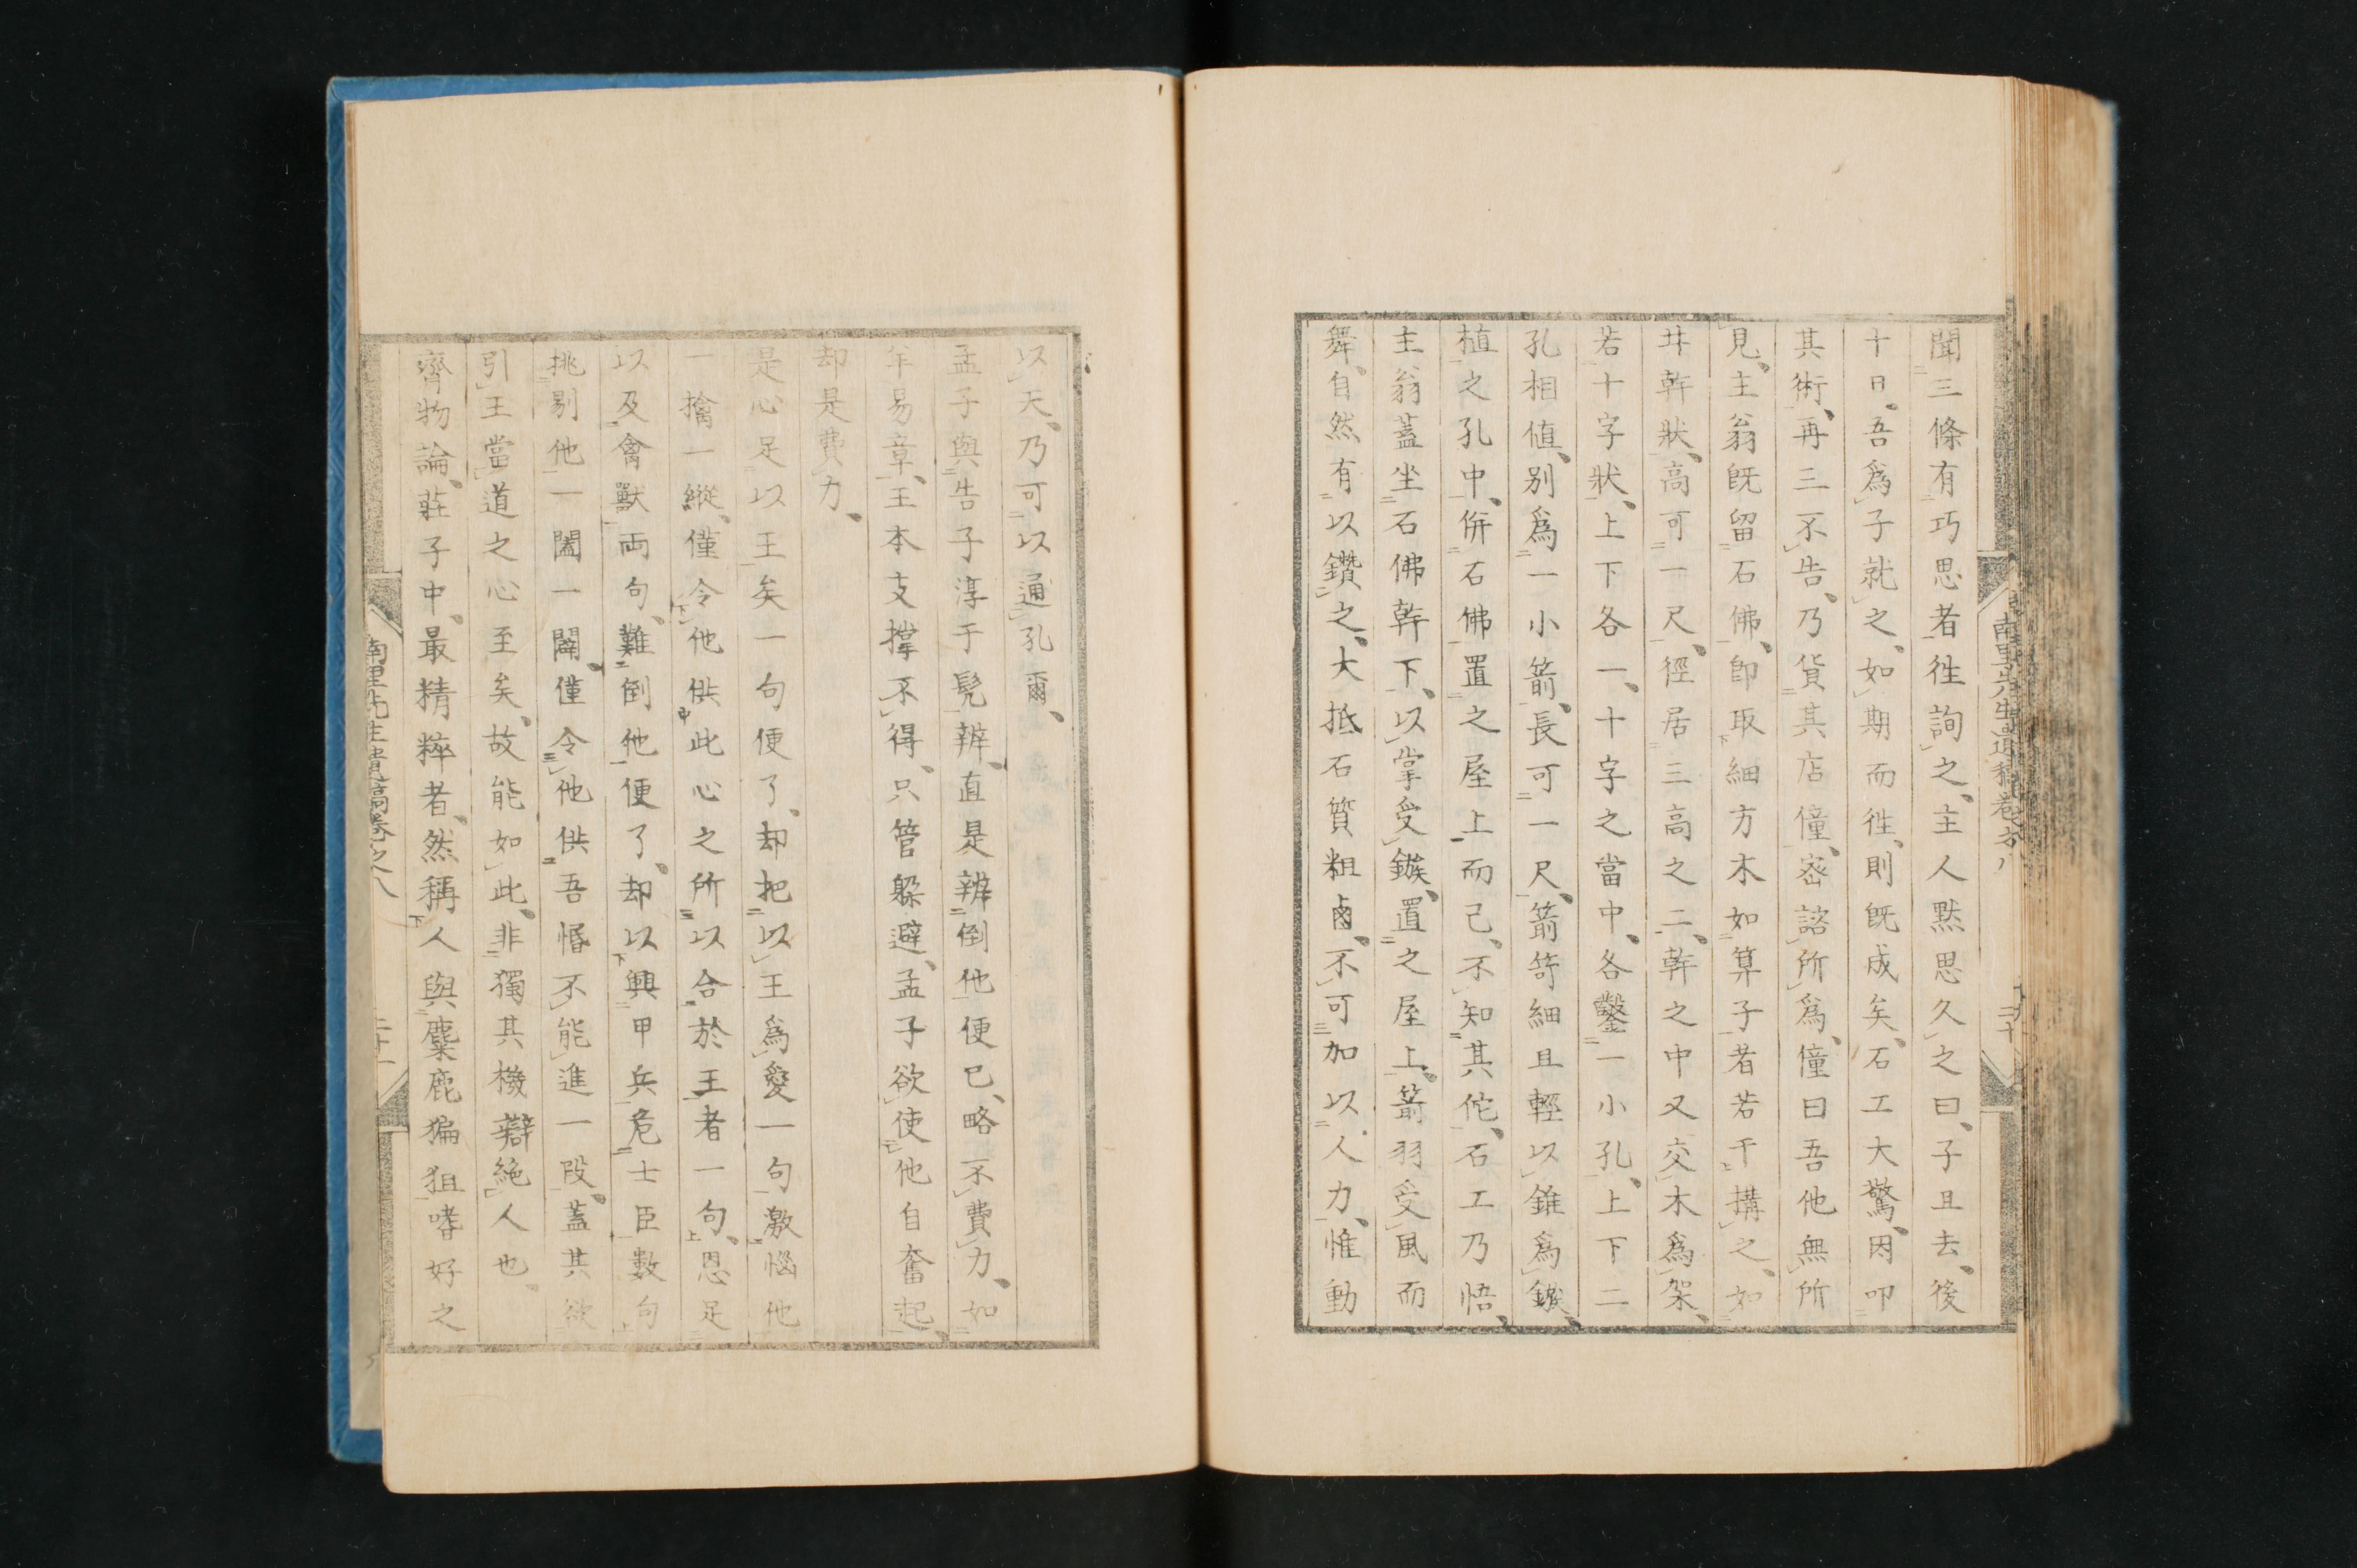 聞三條有巧思者徃詢之、主人默思久之曰、子且去、後
十日、吾爲子就之、如期而徃、則既成矣、石工大驚、因叩
其術、再三不告、乃貨其店僮、密諮所爲、僮曰吾他無所
見、主翁既留石佛、即取細方木如算子者若干搆之、如
井幹狀、高可一尺、徑居三高之二、幹之中又交木爲架、
若十字狀、上下各一、十字之當中、各鑿一小孔、上下二
孔相値、別爲一小箭、長可一尺、箭笴細且輕以錐爲鏃、
植之孔中、併石佛置之屋上而已、不知其佗、石工乃悟、
主翁蓋坐石佛幹下、以掌受鏃、置之屋上、箭羽受風而
舞、自然有以鑽之、大抵石質粗鹵、不可加以人力、惟動
以天、乃可以通孔爾、
孟子與告子淳于髡辨、直是辨倒他便已、略不費力、如
牟易章、王本支撑不得、只管躱避、孟子欲使他自奮起、
却是費力、
是心足以王矣一句便了、却把以王爲愛一句激惱他
一擒一縱、僅令他供此心之所以合於王者一句、恩足
以及禽獸両句、難倒他便了、却以興甲兵危士臣數句
挑剔他一闔一闢、僅令他供吾惛不能進一段、蓋其欲
引王當道之心至矣、故能如此、非獨其機辯絶人也、
齊物論、莊子中、最精粹者、然稱人與麋鹿猵狙嗜好之
南里先生遺稿卷之八